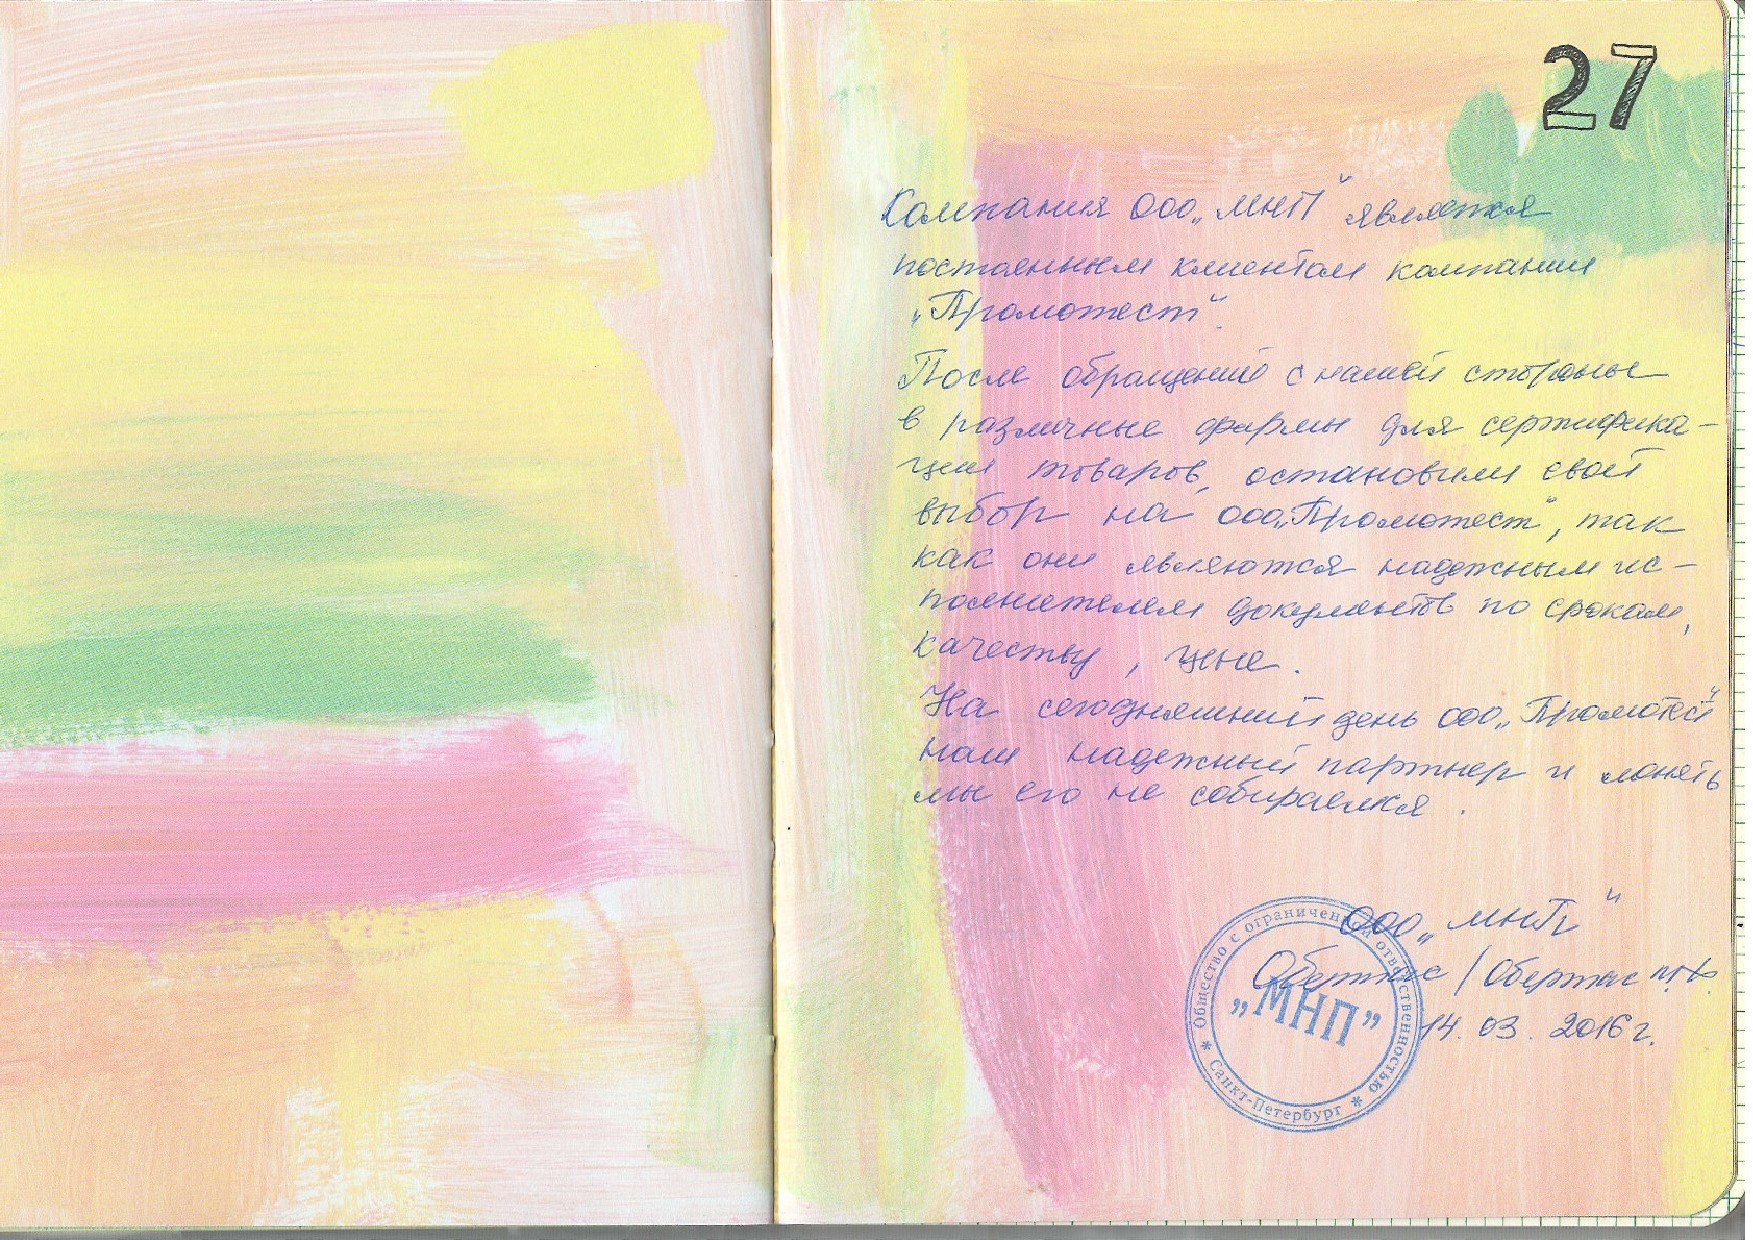 27
Компания ООО „МНП" является
постоянным клиентом компании
„Промотест".
После обращений с нашей стороны
в различные фирмы для сертифика-
ции товаров, остановили свой
выбор на ООО „Промотест", так
как они являются надежным ис-
полнителем документов по срокам,
качеству, цене.
На сегодняшний день ООО „Промотест"
наш надежный партнер и менять
мы его не собираемся.
ООО „МНП"
/ Обертас
14.03.2016 г.
Общество с ограниченной ответственностью
„МНП”
* Санкт-Петербург *